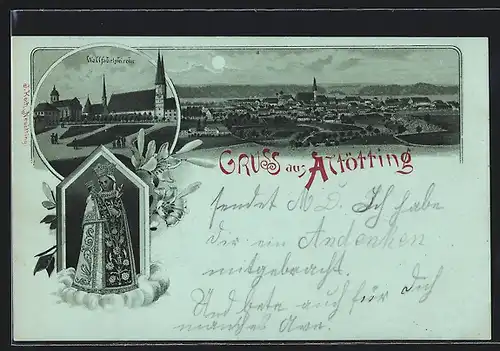 Wallfahrtskirche
Gruss aus Altötting
sendet M. D. Ich habe
dir ein Andenken
mitgebracht.
Und bete auch für Dich
manches Ave.